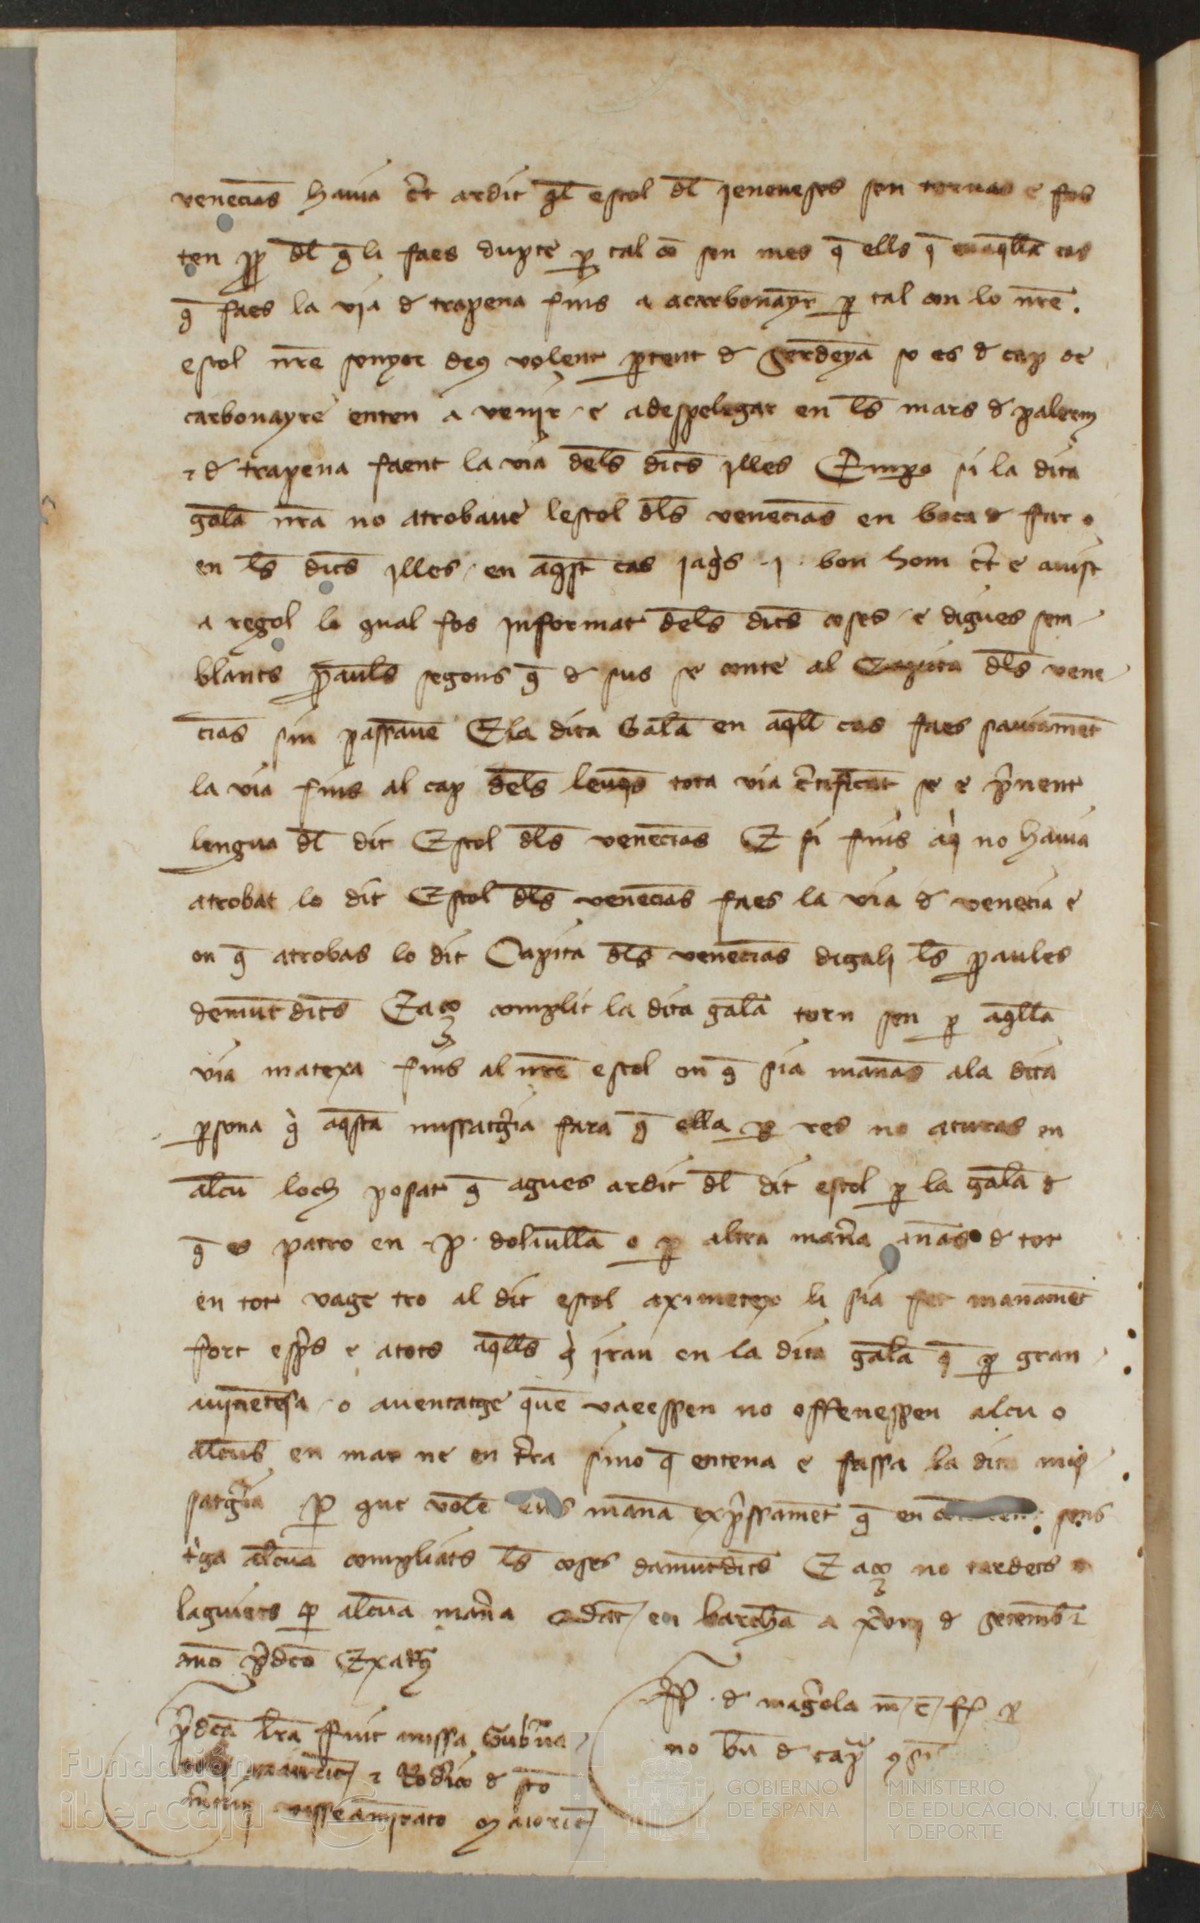 venecias havia c̄t ardit q̄l estol dl̄ jenoueses sen tornas e fos
ten p̄p dl̄ q̄ li faes dupte p̱ tal cō son mes q̄ ells q̄ en aq̄lla cas
q̄ faes la via d̄ trapena fins a carbonayr̄ p̱ tal con lo nr̄e
estol nr̄e senyor deus volent p̱tent d̄ Serdeyā so es d̄ cap de
carbonayre enten a venir e a despelegar en ls̄ mars d̄ palerm
⁊ d̄ trapena faent la via dels̄ dits̄ illes Emp̱o si la dita
galā nr̄a no atrobave lestol dls̄ venecias en boca d̄ far o
en ls̄ dits̄ illes en aq̄st cas jaq̄s ·j· bon hom c̄t e avist
a regol lo qual fos informat dels̄ dits̄ coses e digues sem
blants p̱auls̄ segons q̄ d̄ sus se conte al Capita dls̄ vene
cias sin passave E la dita Galā en aq̄ll cas faes saviament̄
la via fins al cap dels̄ leuq̄s tota via c̄tificāt se e p̄nent
lengua dl̄ dit Estol dls̄ venecias E si fins aq̄ no havia
atrobat lo dit Estol dls̄ venecias faes la via d̄ venecia e
on q̄ atrobas lo dit Capita dls̄ venecias digali ls̄ p̱aules
demunt dits̄ E aço complit la dita galā torn sen p̱ aq̄lla
via matexa fins al nr̄e estol on q̄ sia manās a la dita
p̱sona q̄ aq̄sta missatg̃ia fara q̄ ella p̱ res no aturas en
alcū loch posat q̄ agues ardit dl̄ dit estol p̱ la galā d̄
q̄ es patro en ·p· dolivellā o p̱ altra man̄a anās d̄ tot
en tot vage tro al dit estol aximetex li sia fet manamēt
fort esp̄s e a tots aq̄lls q̄ iran en la dita galā q̄ p̱ gran
avinētesa o aventatge quē vaeessen no offenessen alcu o
alcūs en mar ne en tr̄ra sino q̄ entena e fassa la dita mis
satg̃ia p̱ que volē e us manā exp̄ssamēt q̄ en sens
t̃ga alcūa compliats ls̄ coses damūt dits̄ E aço no tardets
laguiets p̱ alcūa man̄a dat̄ en barch̄a a xviij d̄ setemb̄
año p̄dc̄o Exat̄
ff d̄ mag̃ola
p̄dc̄a lr̄a fuit missa Gub̄na
no
⁊ Rod̄ico d̄ sc̄o
maioric̄
Fundación
iberCaja
GOBIERNO
DE ESPAÑA
MINISTERIO
DE EDUCACIÓN, CULTURA
Y DEPORTE